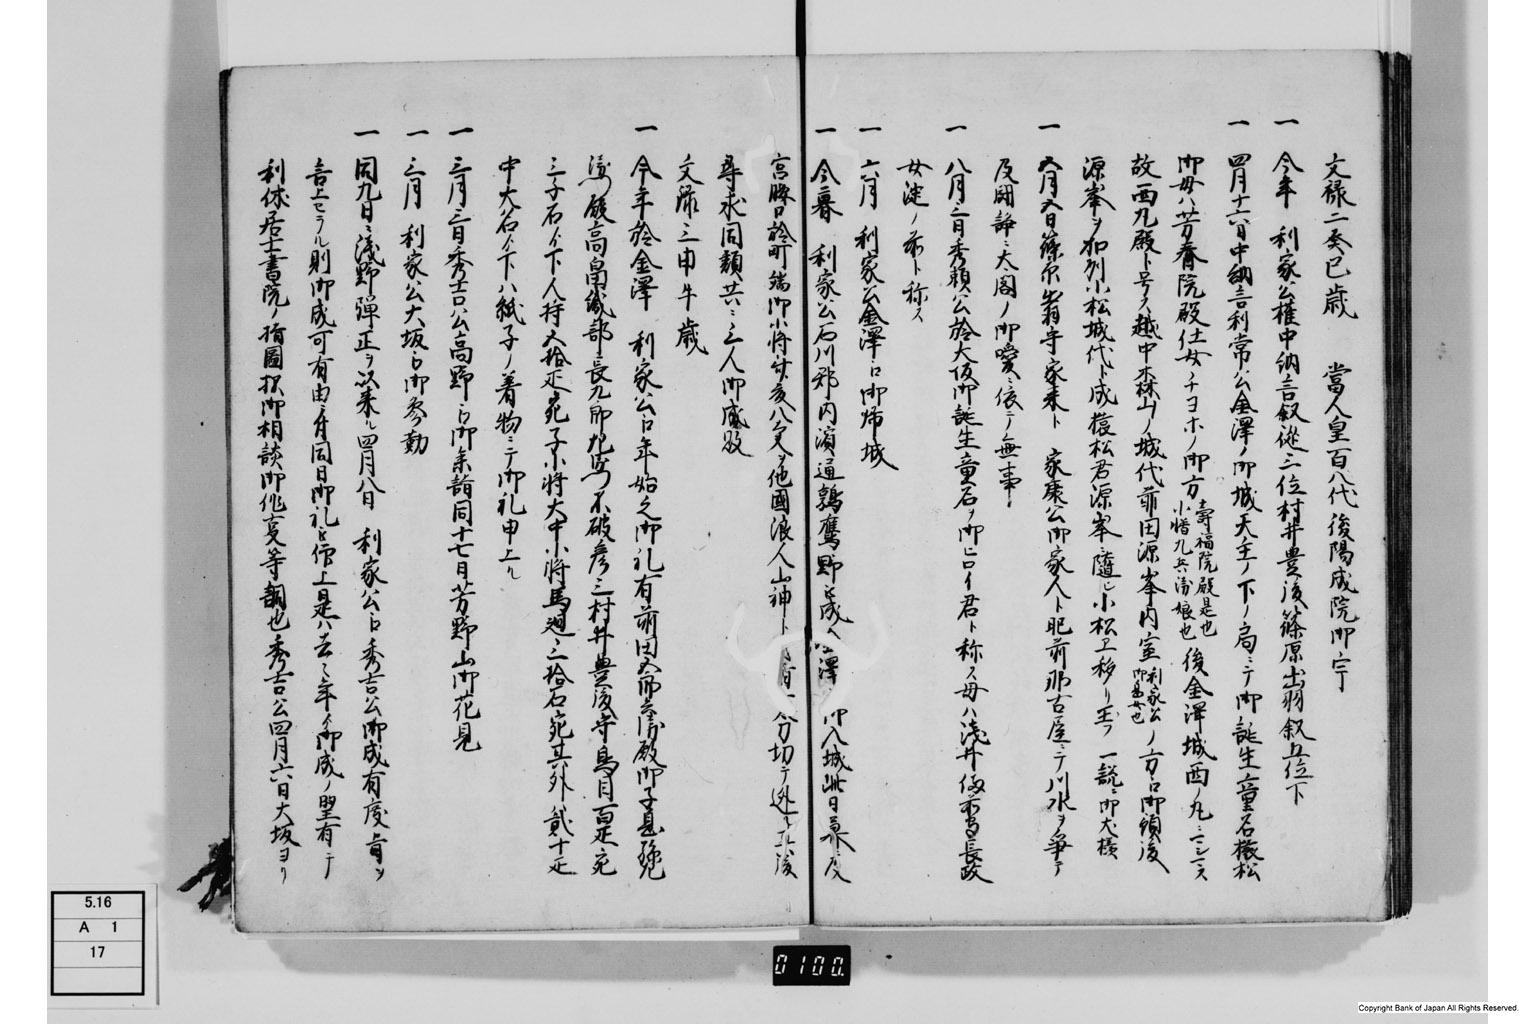 文禄二癸巳歳 當人皇百八代後陽成院御宇
一 今年 利家公権中納言叙從三位村井豊後篠原出羽叙五位下
一 四月十六日中納言利常公金澤ノ御城天主ノ下ノ局ニテ御誕生童名猿松
御母ハ芳春院殿仕女チヨホノ御方 壽福院殿是也 後金澤城西ノ丸ニ
故西丸殿ト号ス越中森山ノ城代前田源峯内室 利家公 ノ方江御預後
源峯ヲ加州小松城代ト成猿松君源峯ニ隨ヒ小松エ移リ玉フ 一説ニ御犬様
一 五月五日篠原出羽守家来ト 家康公御家人ト肥前那古屋ニテ川水ヲ争テ
及闘諍ニ太閤ノ御噯ニ依テ無事
一 八月三日秀頼公於大坂御誕生童名ヲ御ヒロイ君ト称ス母ハ浅井備前守長政
女淀ノ前ト称ス
一 六月 利家公金澤江御帰城
一 今暮 利家公石川郡内濱通鶉鷹野
宮腰口於町端御小将
尋求同類共ニ三人御成敗
文禄三甲午歳
一 今年於金澤 利家公江年始之御礼有前田五郎兵衛殿御子息
殿高畠織部長九郎左衛門不破彦三村井豊後守鳥目百疋宛
三千石ゟ下人持五拾疋宛子小将大中小将馬廻ニ三拾石宛其外貳十疋
中大名ゟ下ハ紙子ノ着物ニテ御礼申上ル
一 三月三日秀吉公高野江御参詣同十七日芳野山御花見
一 三月 利家公大坂江御参勤
一 同九日ニ浅野弾正ヲ以来ル四月八日 利家公江秀吉公御成有度旨ヲ
言上セラル則御成可有由ニ付同日御礼
利休居士書院ノ指圖 御相談御作事等調也秀吉公四月六日大坂ヨリ
5.16
A 1
17
0100.
Copyright Bank of Japan All Rights Reserved.